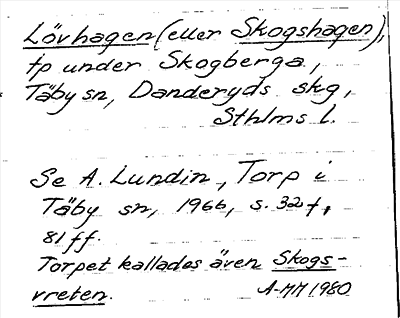 Lövhagen (eller Skogshagen),
tp under Skogberga,
Täby sn, Danderyds skg,
Sthlms l.
Se A. Lundin, Torp i
Täby sn, 1966, s. 32 f,
81 ff.
Torpet kallades även Skogs-
vreten. A-MM 1980